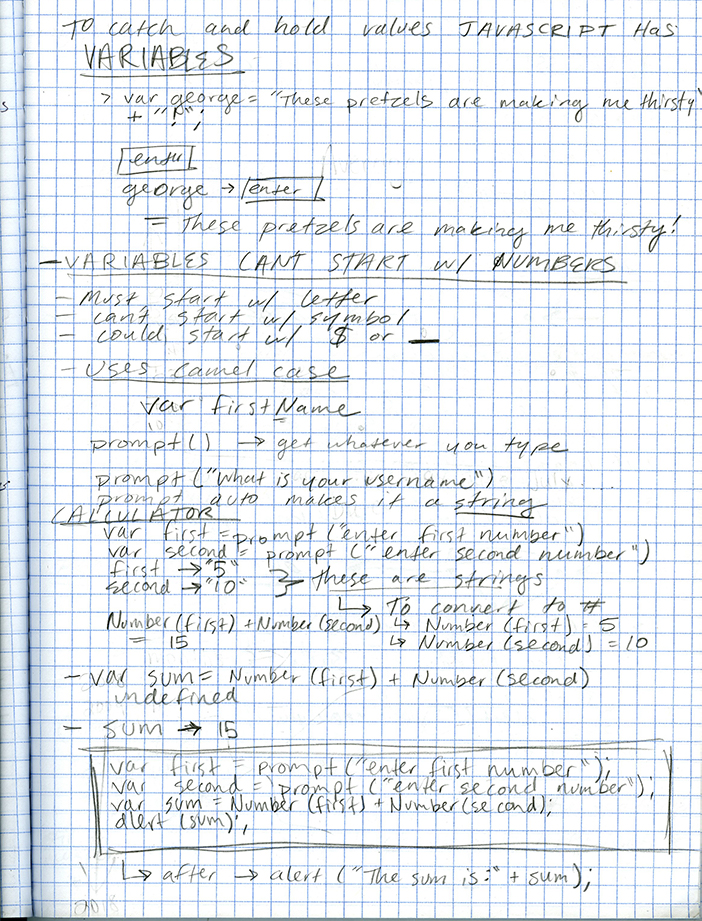 To catch and hold values JAVASCRIPT HAS
VARIABLES
> var george = "These pretzels are making me thirsty"
+ "!";
enter
george → enter
= These pretzels are making me thirsty!
- VARIABLES CANT START w/ NUMBERS
- Must start w/ letter
- can't start w/ symbol
- could start w/ $ or _
- Uses camel case
var firstName
prompt() → get whatever you type
prompt("What is your username")
prompt auto makes it a string
CALCULATOR
var first = prompt ("enter first number")
var second = prompt ("enter second number")
first → "5"
second → "10" } these are strings
↳ To convert to #
Number(first) + Number(second) ↳ Number (first) = 5
= 15 ↳ Number (second) = 10
- var sum = Number (first) + Number (second)
undefined
- sum → 15
var first = prompt ("enter first number");
var second = prompt ("enter second number");
var sum = Number (first) + Number(second);
alert (sum);
↳ after → alert ("The sum is:" + sum);